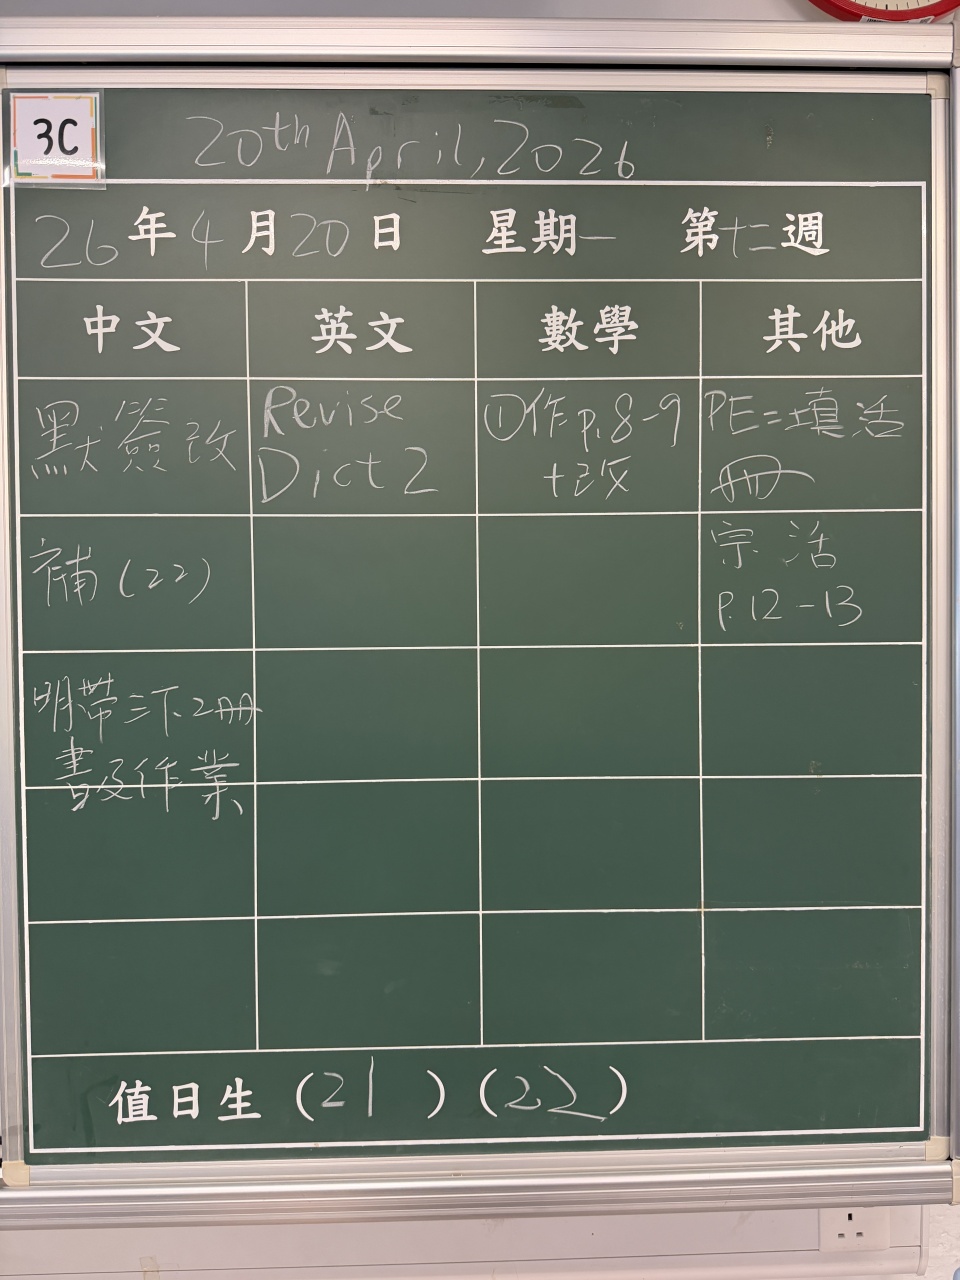 3C
20th April, 2026
26年4月20日 星期一 第十二週
中文 英文 數學 其他
默簽改
Revise
Dict 2
①作p.8-9
+改
PE=填活
冊
補(22)
宗 活
P.12-13
明帶三下2冊
書及作業
值日生(21)(22)